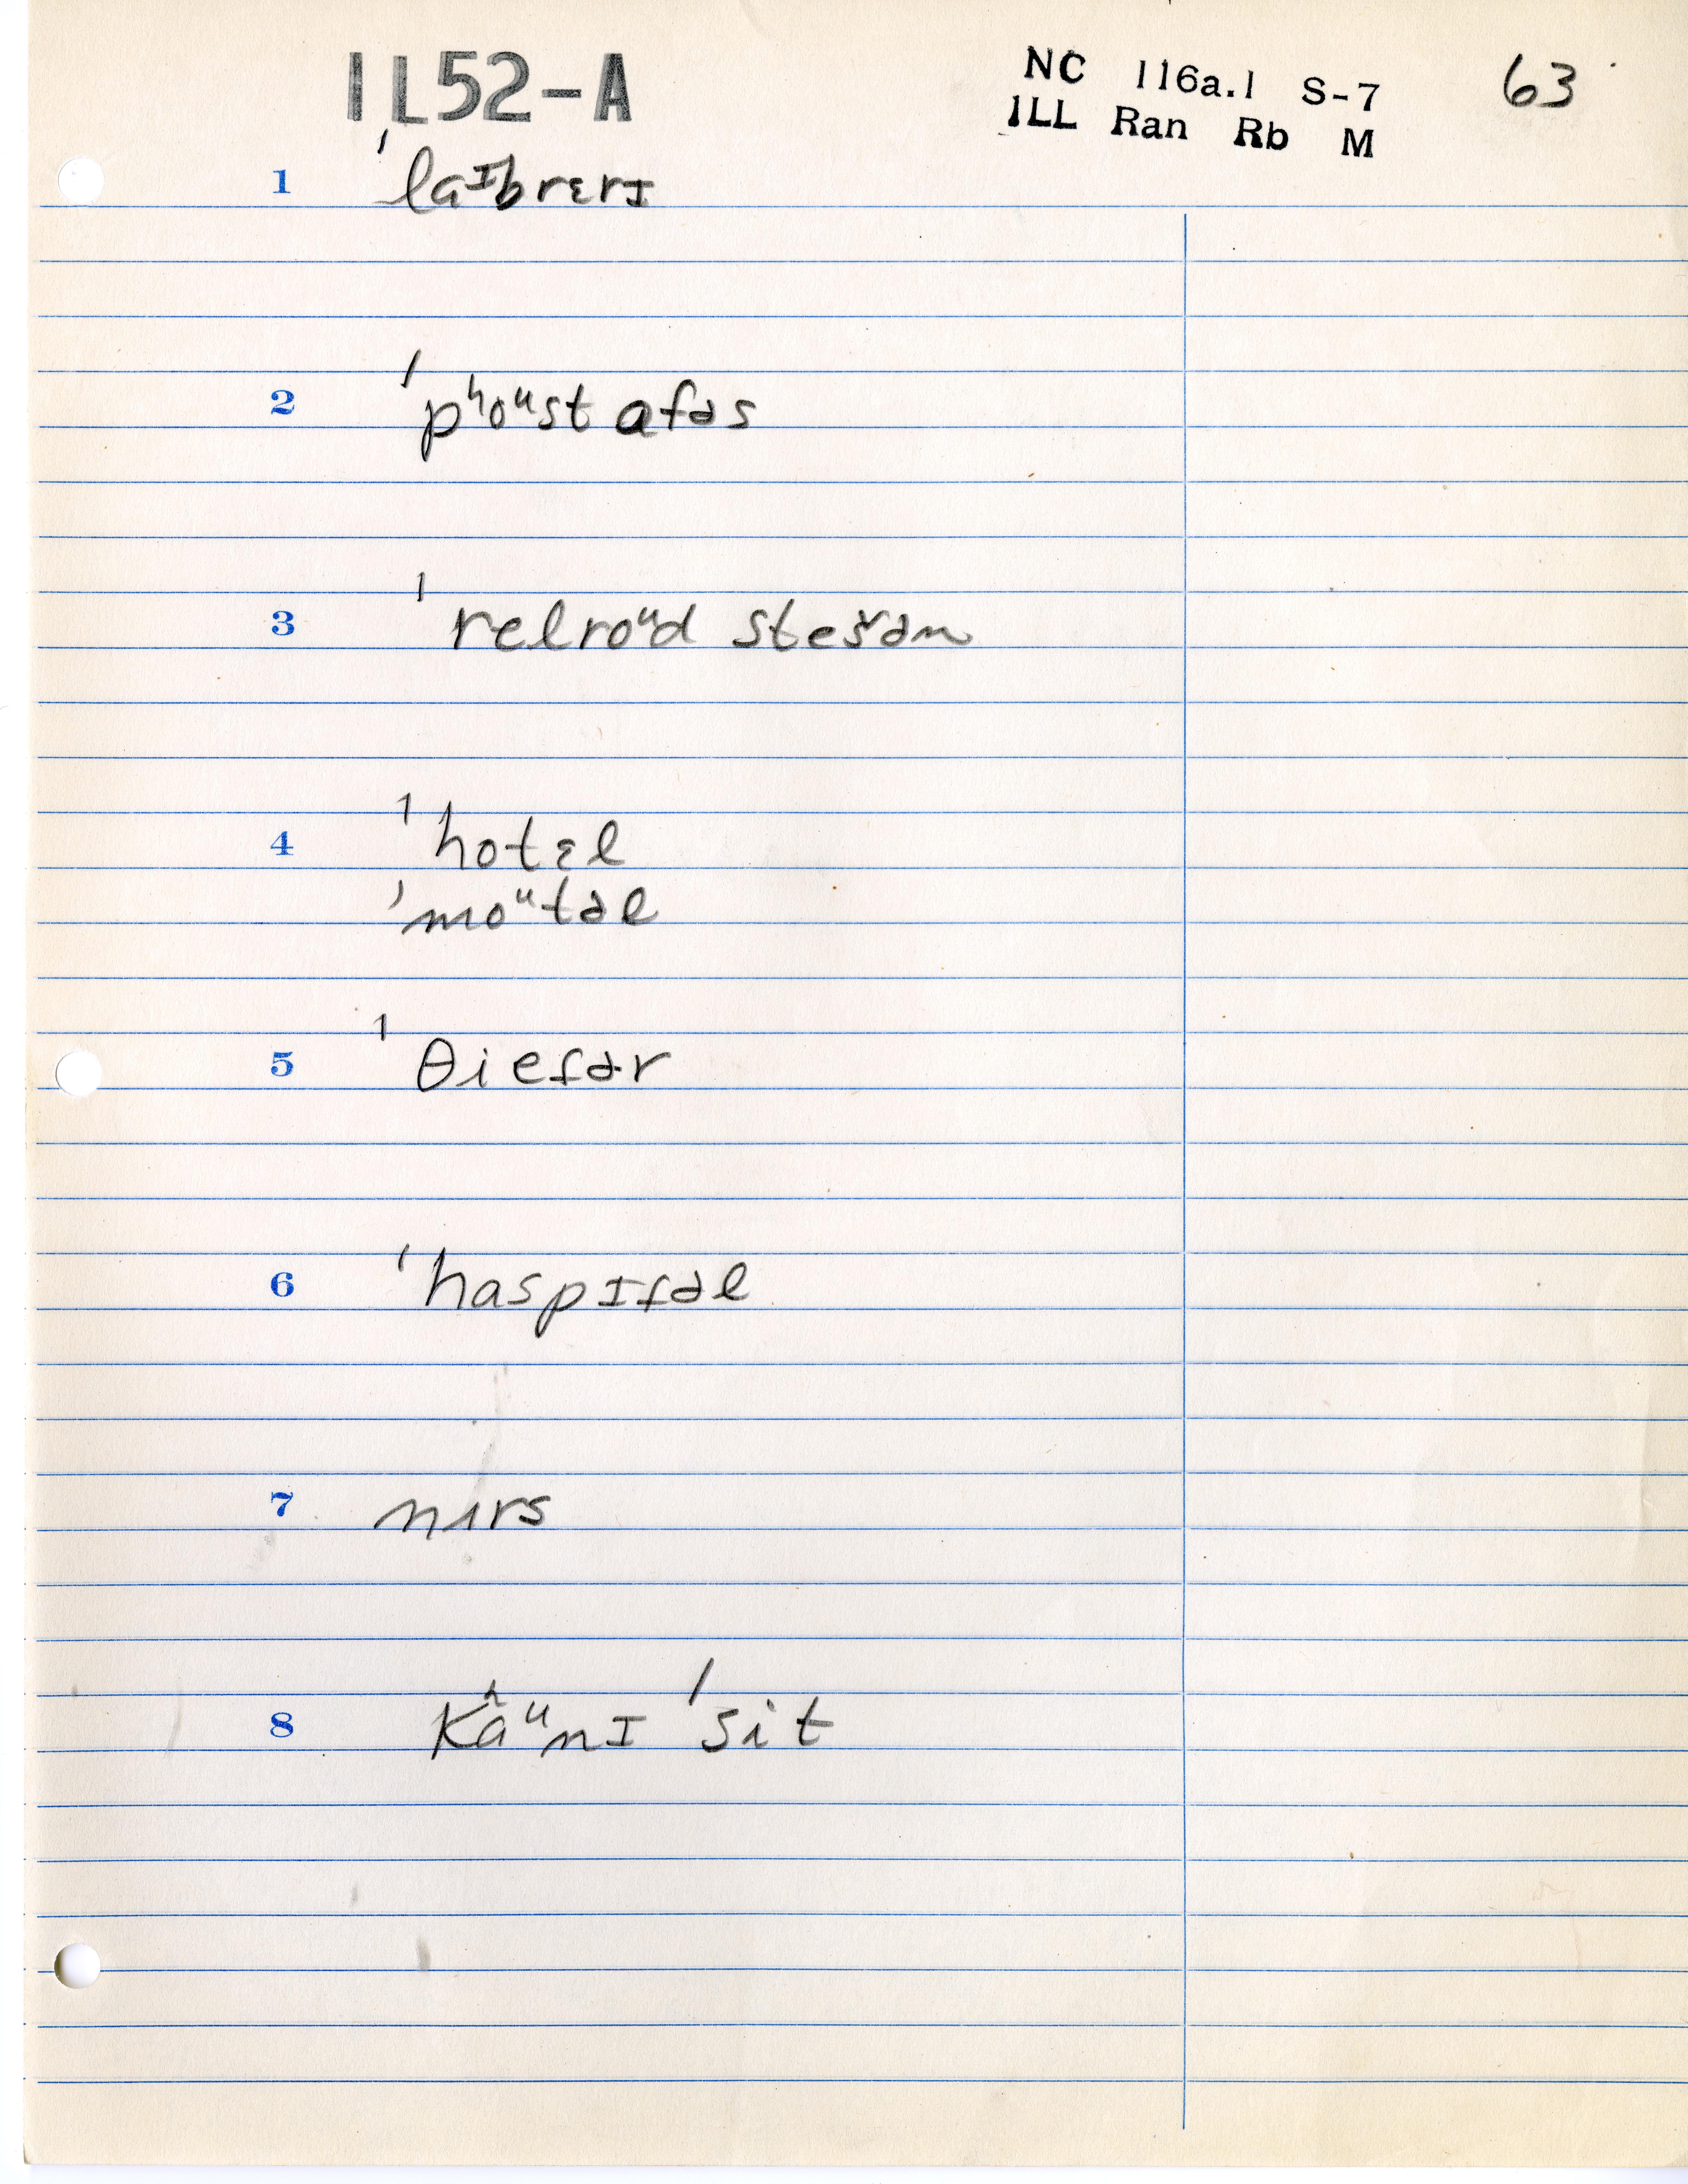 1L52-A
NC 116a.1 S-7 63
ILL Ran Rb M
1 ˈlaᶦbrɛrɪ
2 ˈpʰoᵘst afəs
3 ˈrelroᵘd stešən
4 ˈhotɛl
ˈmoᵘtəl
5 ˈθieɾər
6 ˈhaspɪɾəl
7 nɪrs
8 kâᵘnɪ ˈsit